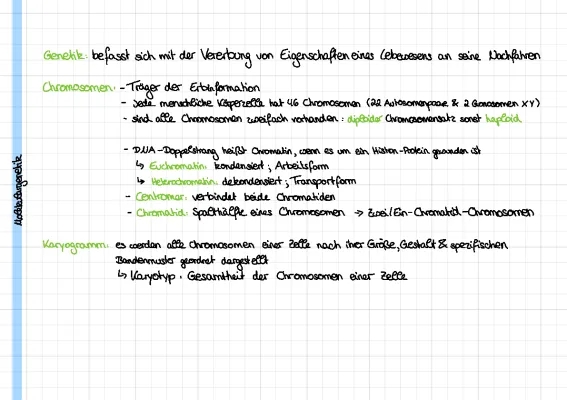 Genetik: befasst sich mit der Vererbung von Eigenschaften eines Lebewesens an seine Nachfahren
Chromosomen: - Träger der Erbinformation
- Jede menschliche Körperzelle hat 46 Chromosomen (22 Autosomenpaare & 2 Gonosomen XY)
- sind alle Chromosomen zweifach vorhanden: diploider Chromosomensatz sonst haploid
- DNA-Doppelstrang heißt Chromatin, wenn es um ein Histon-Protein gewunden ist
↳ Euchromatin: kondensiert; Arbeitsform
↳ Heterochromatin: dekondensiert; Transportform
- Centromer: verbindet beide Chromatiden
- Chromatid: Spalthälfte eines Chromosomen → Zwei/Ein-Chromatid-Chromosomen
Karyogramm: es werden alle Chromosomen einer Zelle nach ihrer Größe, Gestalt & spezifischen
Bandenmuster geordnet dargestellt
↳ Karyotyp: Gesamtheit der Chromosomen einer Zelle